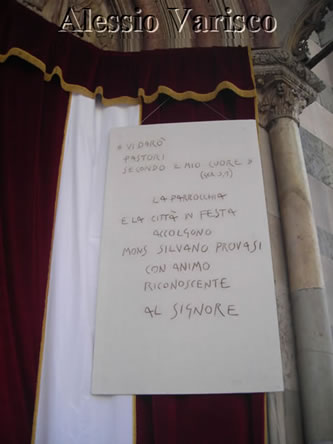 Alessio Varisco
« VI DARÒ
PASTORI
SECONDO IL MIO CUORE »
(GER. 3,15)
LA PARROCCHIA
E LA CITTÀ IN FESTA
ACCOLGONO
MONS. SILVANO PROVASI
CON ANIMO
RICONOSCENTE
AL SIGNORE